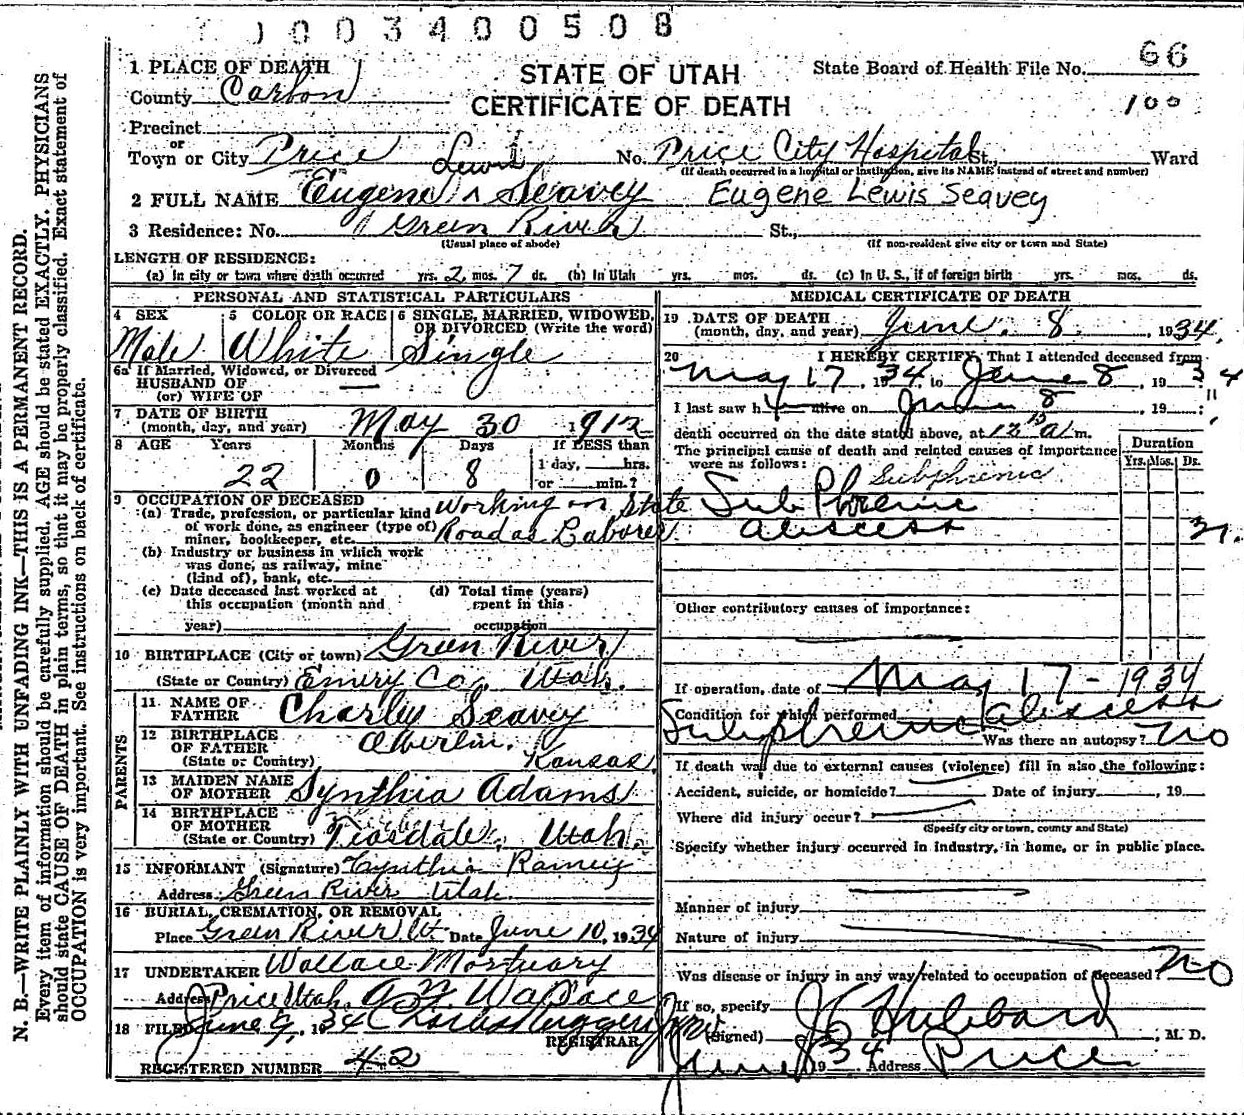 1003400508
66
1 PLACE OF DEATH STATE OF UTAH State Board of Health File No.
County Carbon CERTIFICATE OF DEATH 100
Precinct
or
Town or City Price No. Price City Hospital St., Ward
(If death occurred in a hospital or institution, give its NAME instead of street and number)
Lewis
2 FULL NAME Eugene ^ Seavey Eugene Lewis Seavey
3 Residence: No. Green River St.,
(Usual place of abode) (If non-resident give city or town and State)
LENGTH OF RESIDENCE:
(a) In city or town where death occurred yrs. 2 mos. 7 ds. (b) In Utah yrs. mos. ds. (c) In U. S., if of foreign birth yrs. mos. ds.
PERSONAL AND STATISTICAL PARTICULARS
4 SEX 5 COLOR OR RACE 6 SINGLE, MARRIED, WIDOWED,
OR DIVORCED (Write the word)
Male White Single
6a If Married, Widowed, or Divorced
HUSBAND OF
(or) WIFE OF
7 DATE OF BIRTH
(month, day, and year) May 30 1912
8 AGE Years Months Days If LESS than
22 0 8 1 day, hrs.
or min.?
9 OCCUPATION OF DECEASED
(a) Trade, profession, or particular kind Working on State
of work done, as engineer (type of)
miner, bookkeeper, etc. Road as Laborer
(b) Industry or business in which work
was done, as railway, mine
(kind of), bank, etc.
(c) Date deceased last worked at (d) Total time (years)
this occupation (month and spent in this
year) occupation
10 BIRTHPLACE (City or town) Green River
(State or Country) Emery Co. Utah.
PARENTS
11 NAME OF
FATHER Charley Seavey
12 BIRTHPLACE
OF FATHER Oberlin,
(State or Country) Kansas
13 MAIDEN NAME
OF MOTHER Synthia Adams
14 BIRTHPLACE
OF MOTHER
(State or Country) Utah.
15 INFORMANT (Signature) Cynthia Ramey
Address Green River Utah.
16 BURIAL, CREMATION, OR REMOVAL
Place Green River Ut Date June 10, 1934
17 UNDERTAKER Wallace Mortuary
Address Price Utah. Wallace
18 FILED June 9, 1934
REGISTRAR
REGISTERED NUMBER 42
MEDICAL CERTIFICATE OF DEATH
19 DATE OF DEATH
(month, day, and year) June 8 1934.
20 I HEREBY CERTIFY, That I attended deceased from
May 17, 1934 to June 8, 1934
I last saw h alive on June 8, 19 "
death occurred on the date stated above, at 12 15 a m.
The principal cause of death and related causes of importance
were as follows:
Duration
Yrs. Mos. Ds.
Subphrenic
Sub Phrenic
abscess
Other contributory causes of importance:
If operation, date of May 17 - 1934
Condition for which performed
Subphrenic abscess
Was there an autopsy? No
If death was due to external causes (violence) fill in also the following:
Accident, suicide, or homicide? Date of injury , 19
Where did injury occur?
(Specify city or town, county and State)
Specify whether injury occurred in industry, in home, or in public place.
Manner of injury
Nature of injury
Was disease or injury in any way related to occupation of deceased? No
If so, specify
(Signed) Hubbard, M. D.
June 8 1934 Address Price
N. B.—WRITE PLAINLY WITH UNFADING INK—THIS IS A PERMANENT RECORD.
Every item of information should be carefully supplied. AGE should be stated EXACTLY. PHYSICIANS
should state CAUSE OF DEATH in plain terms, so that it may be properly classified. Exact statement of
OCCUPATION is very important. See instructions on back of certificate.